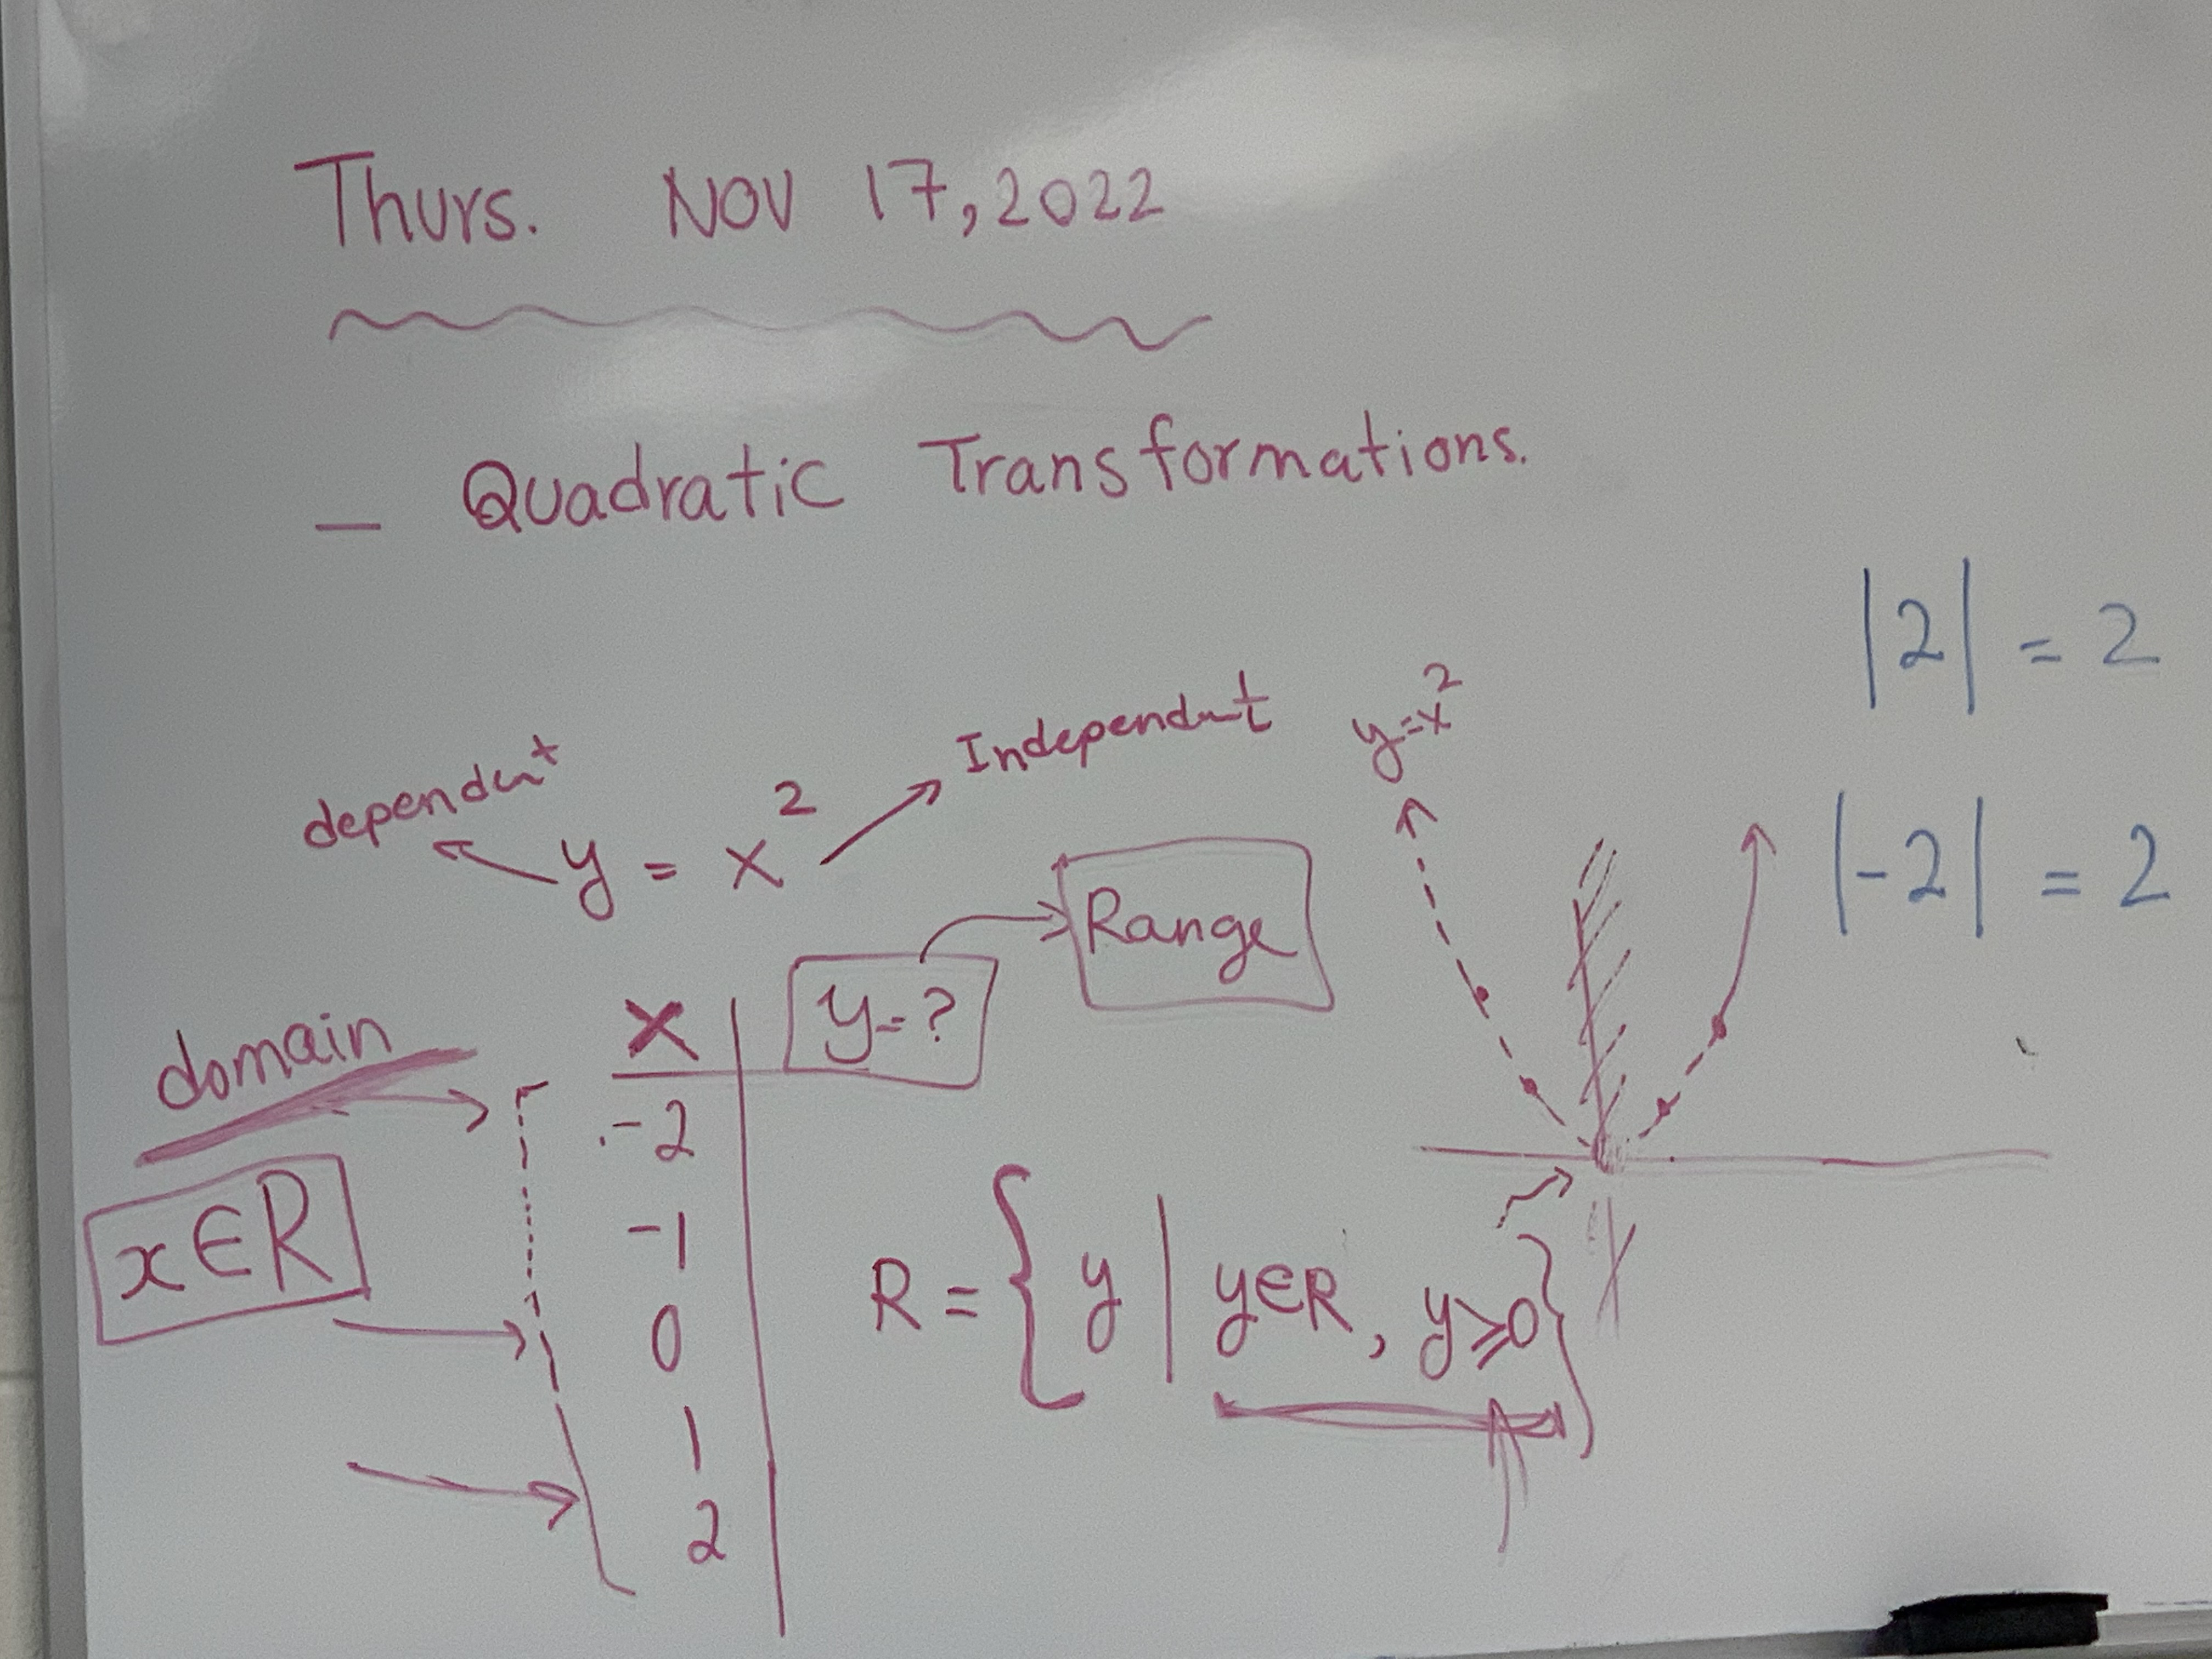 Thurs. NOV 17, 2022
— Quadratic Transformations.
|2| = 2
dependent
Independent
y=x²
y = x²
|-2| = 2
Range
domain
x
y=?
-2
x∈R
-1
0
R = { y | y∈R, y⩾0 }
1
2